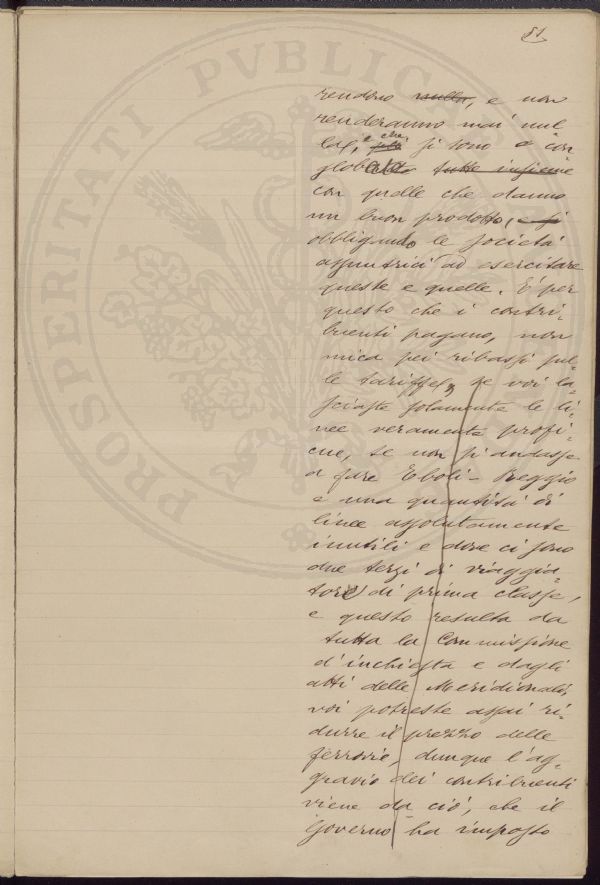 51
PROSPERITATI PVBLICAE
rendono nulla, e non
renderanno mai nul
la, e che si sono con
globate tutte insieme
con quelle che danno
un buon prodotto, e si
obbligando le Società
assuntrici ad esercitare
queste e quelle. È per
questo che i contri-
buenti pagano, non
mica pei ribassi sul-
le tariffe, se voi la-
sciaste solamente le li-
nee veramente profi-
cue, se non si andasse
a fare Eboli - Reggio
e una quantità di
linee assolutamente
inutili e dove ci sono
due terzi di viaggia-
tore di prima classe,
e questo resulta da
tutta la Commissione
d'inchiesta e dagli
atti delle Meridionali,
voi potreste assai ri-
durre il prezzo delle
ferrovie, dunque l'ag-
gravio dei contribuenti
viene da ciò, che il
Governo ha imposto